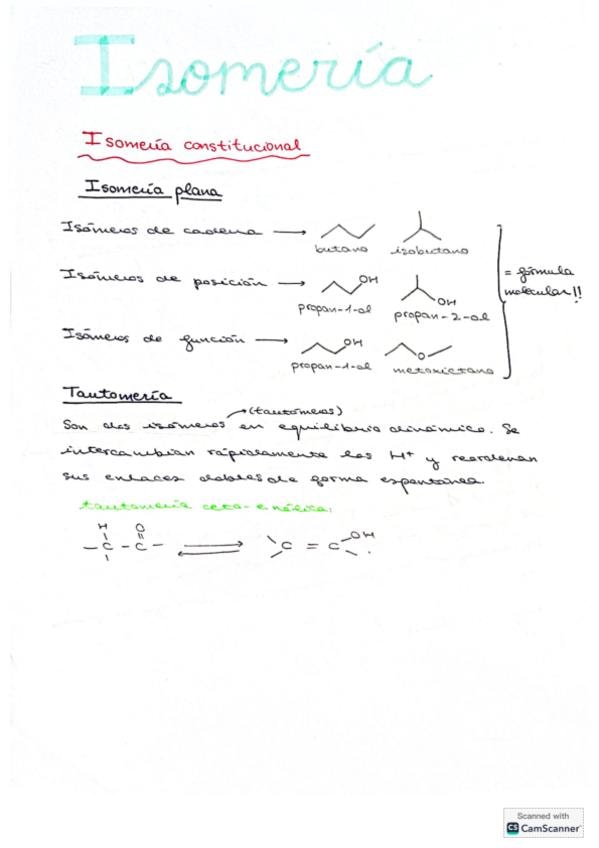 Isomería
Isomería constitucional
Isomería plana
Isómeros de cadena → butano isobutano
Isómeros de posición → OH OH propan-1-ol propan-2-ol
= fórmula molecular!!
Isómeros de función → OH O propan-1-ol metoxietano
Tautomería
(tautómeros)
Son dos isómeros en equilibrio dinámico. Se
intercambian rápidamente los H⁺ y reordenan
sus enlaces dobles de forma espontánea.
tautomería ceto-enólica:
H O OH
C - C C = C
Scanned with
CS CamScanner